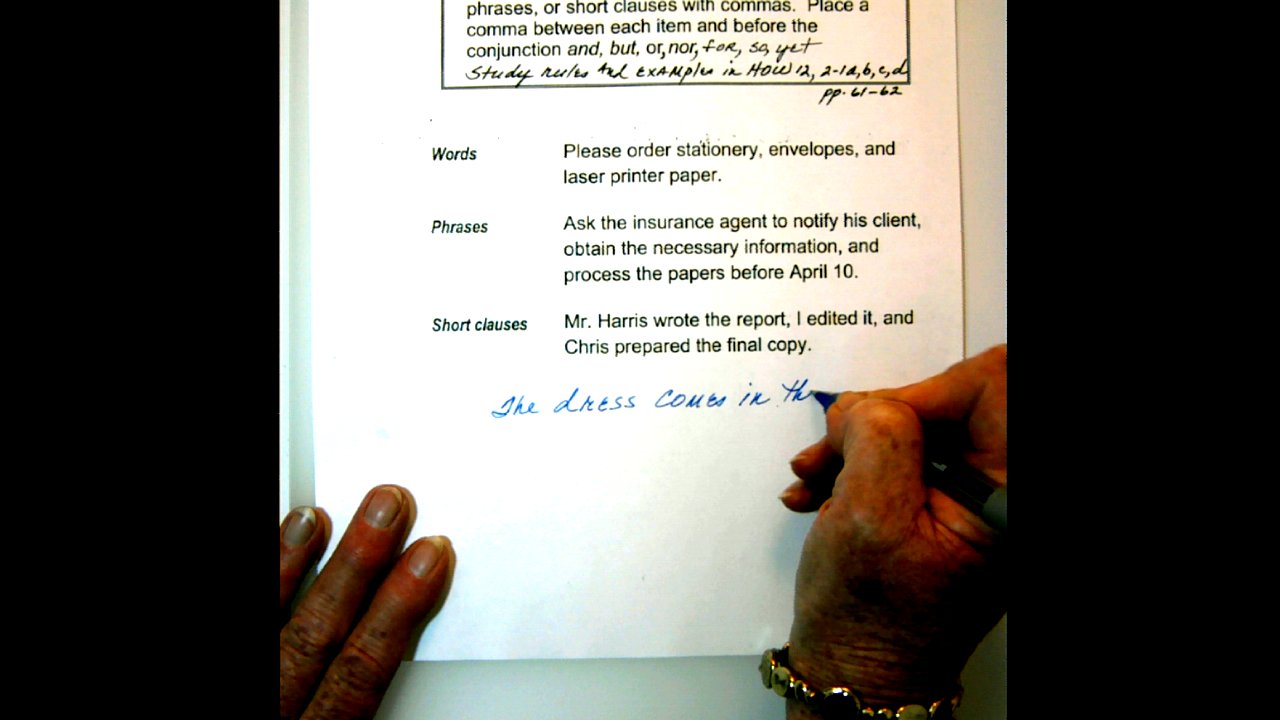 phrases, or short clauses with commas. Place a
comma between each item and before the
conjunction and, but, or, nor, for, so, yet
Study rules and examples in HOW 12, 2-1a,b,c,d
pp. 61-62
Words
Please order stationery, envelopes, and
laser printer paper.
Phrases
Ask the insurance agent to notify his client,
obtain the necessary information, and
process the papers before April 10.
Short clauses
Mr. Harris wrote the report, I edited it, and
Chris prepared the final copy.
The dress comes in th